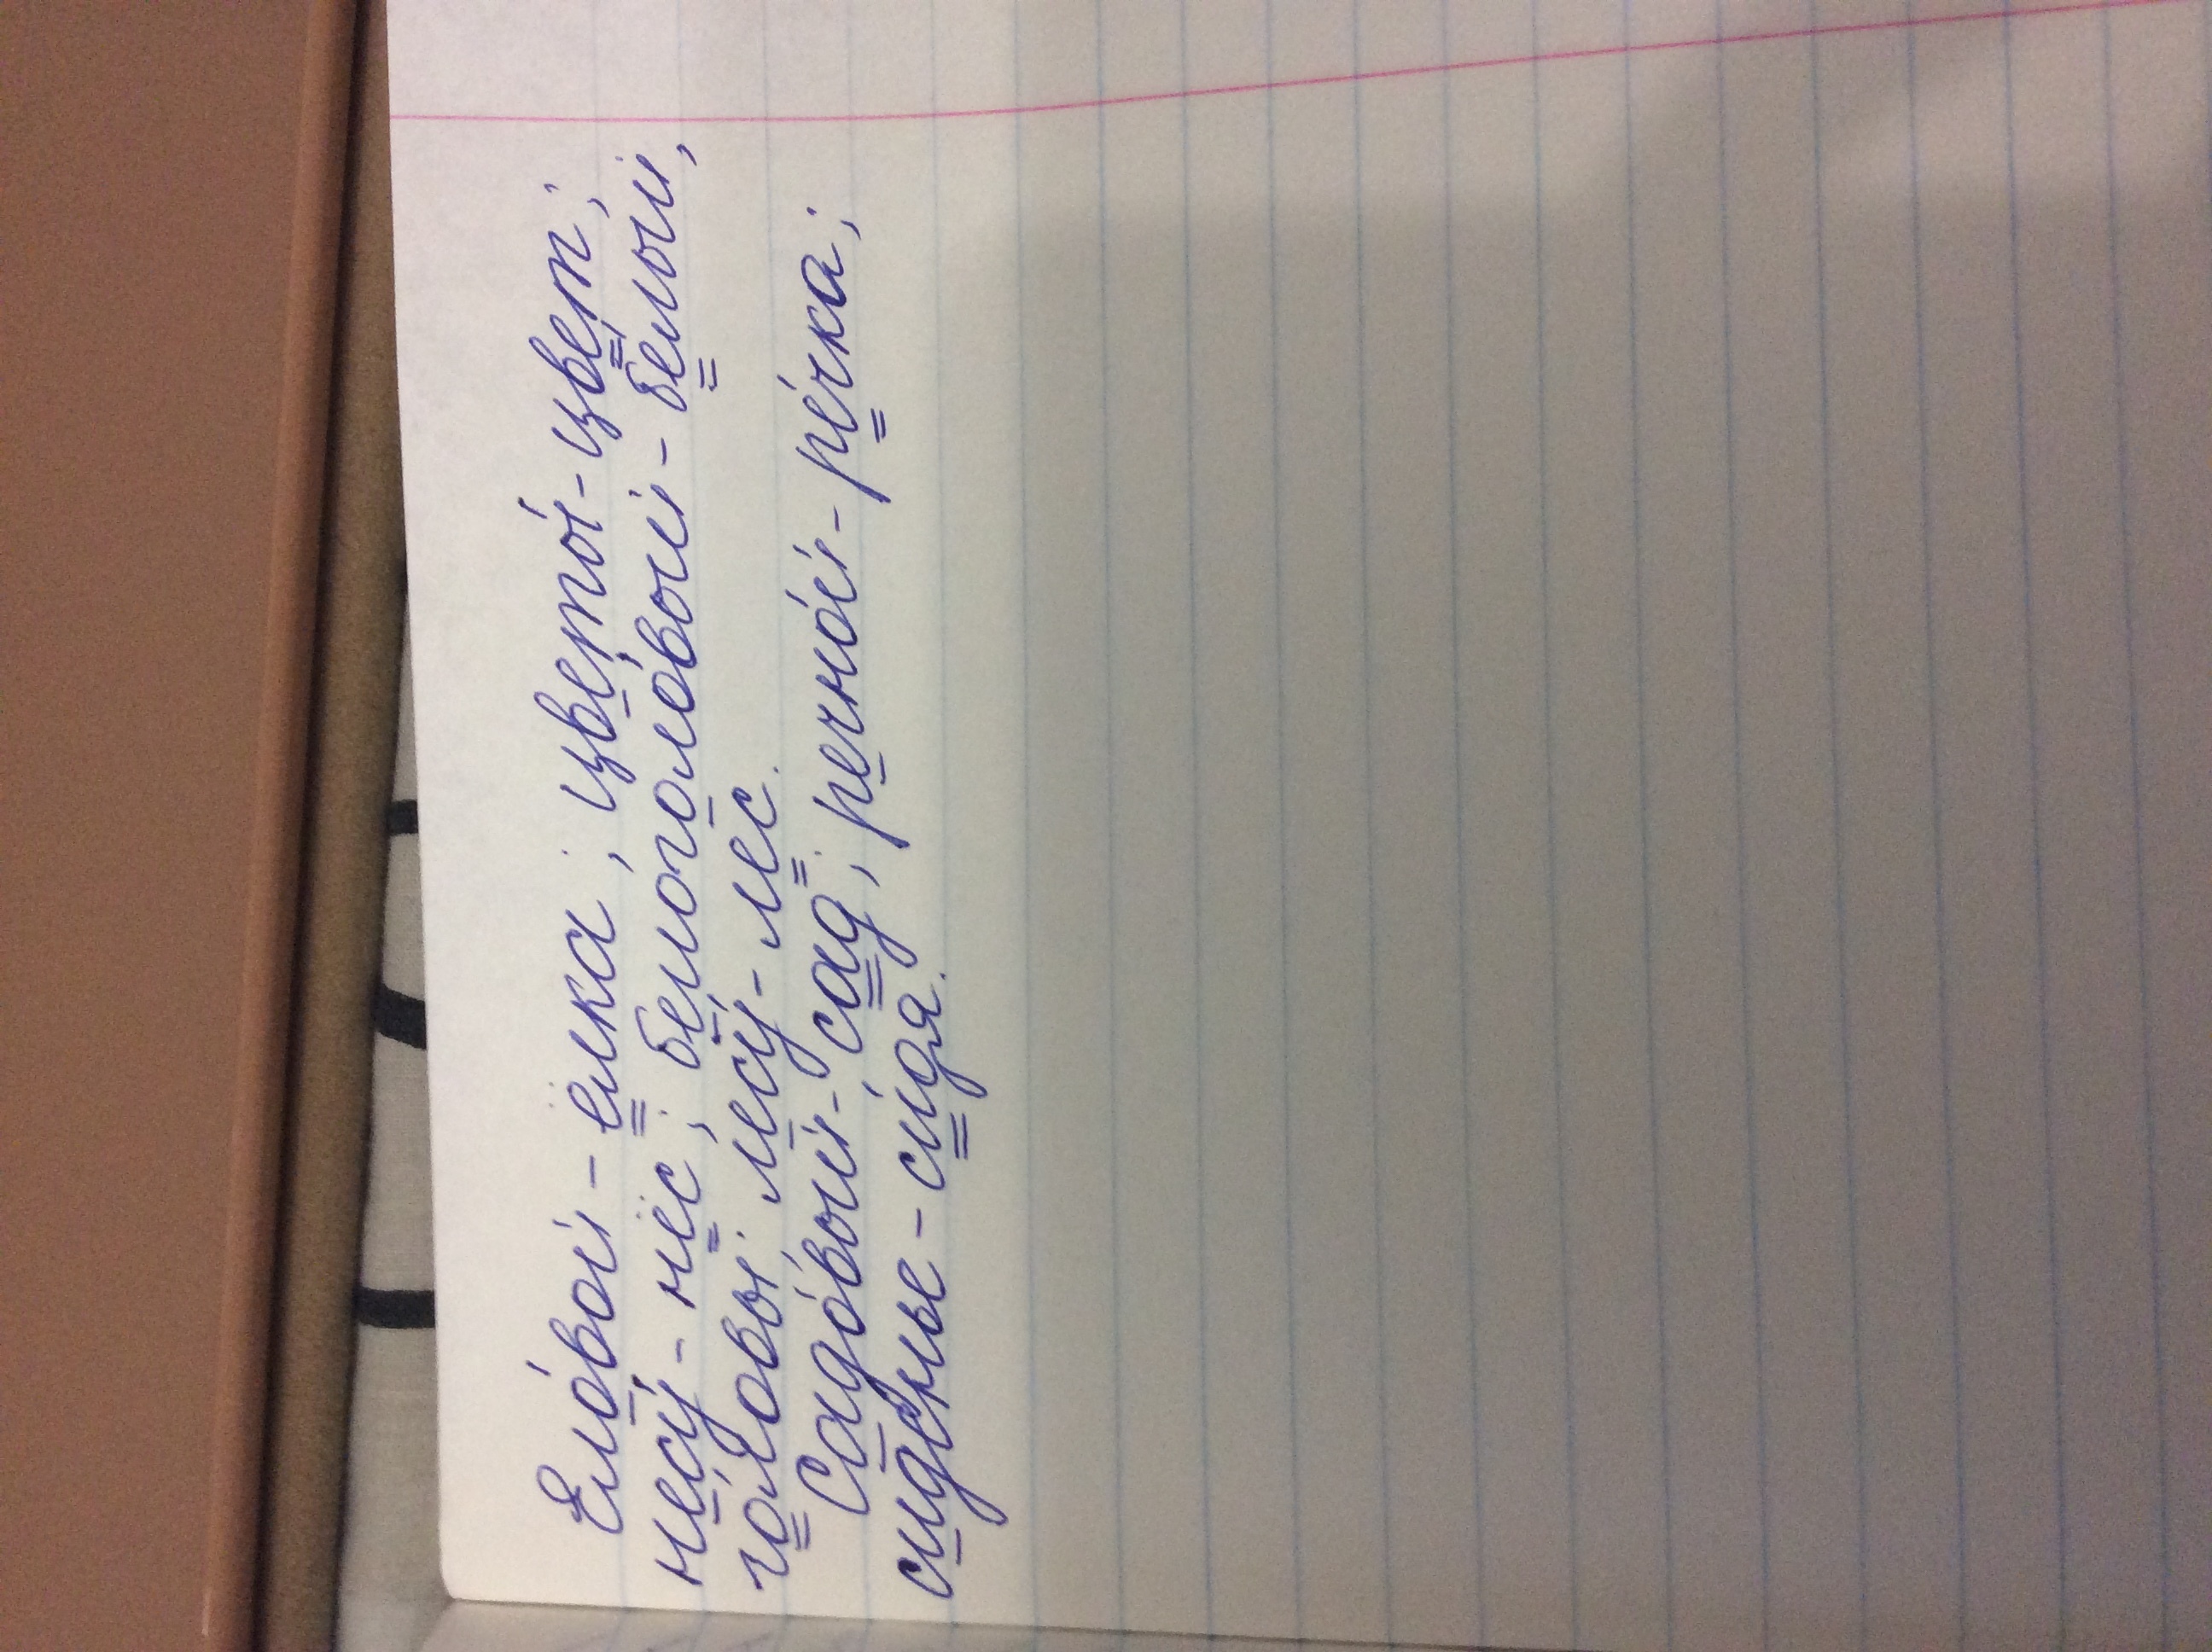 Еловой - ёлка; цветы́ - цвет;
несу́ - нёс; белоголо́вый - белый,
головы. лесу́ - лес.
Садо́вый - сад; речно́й - ре́чка;
сиденье - сидя.